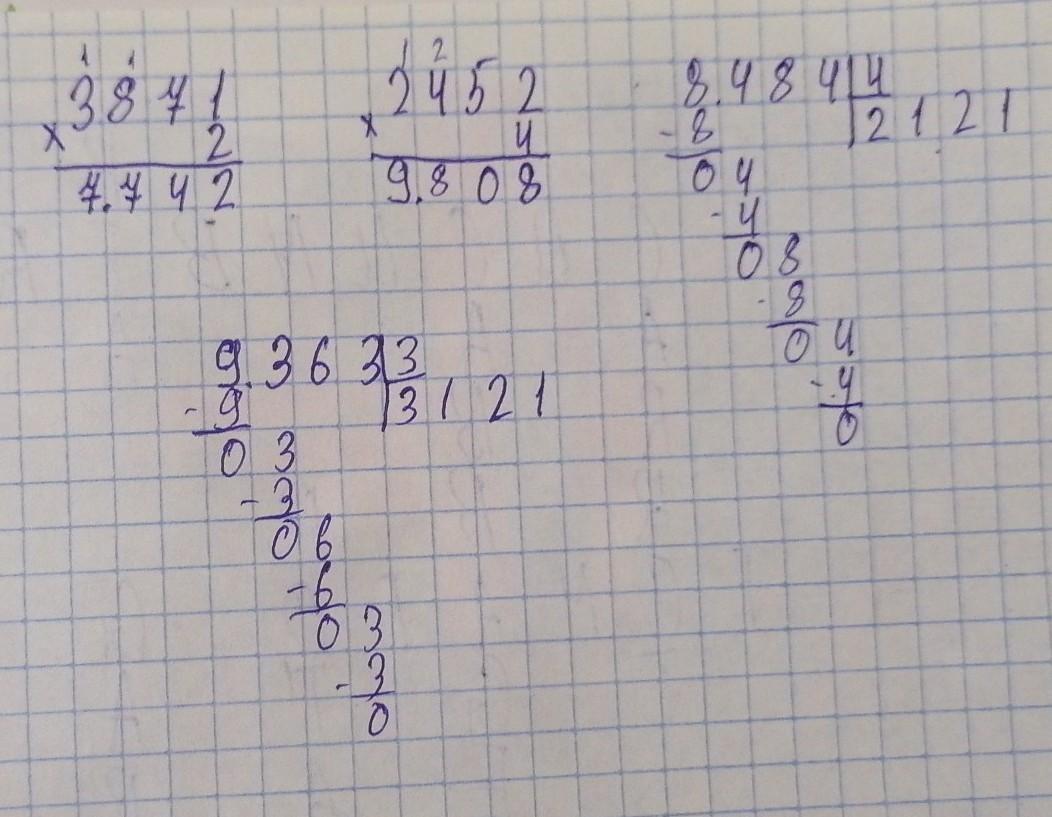 1 1
3 8 7 1
x 2
7.7 4 2
1 2
2 4 5 2
x 4
9.8 0 8
8.4 8 4 4
- 8 2 1 2 1
0 4
- 4
0 8
- 8
0 4
- 4
0
9.3 6 3 3
- 9 3 1 2 1
0 3
- 3
0 6
- 6
0 3
- 3
0